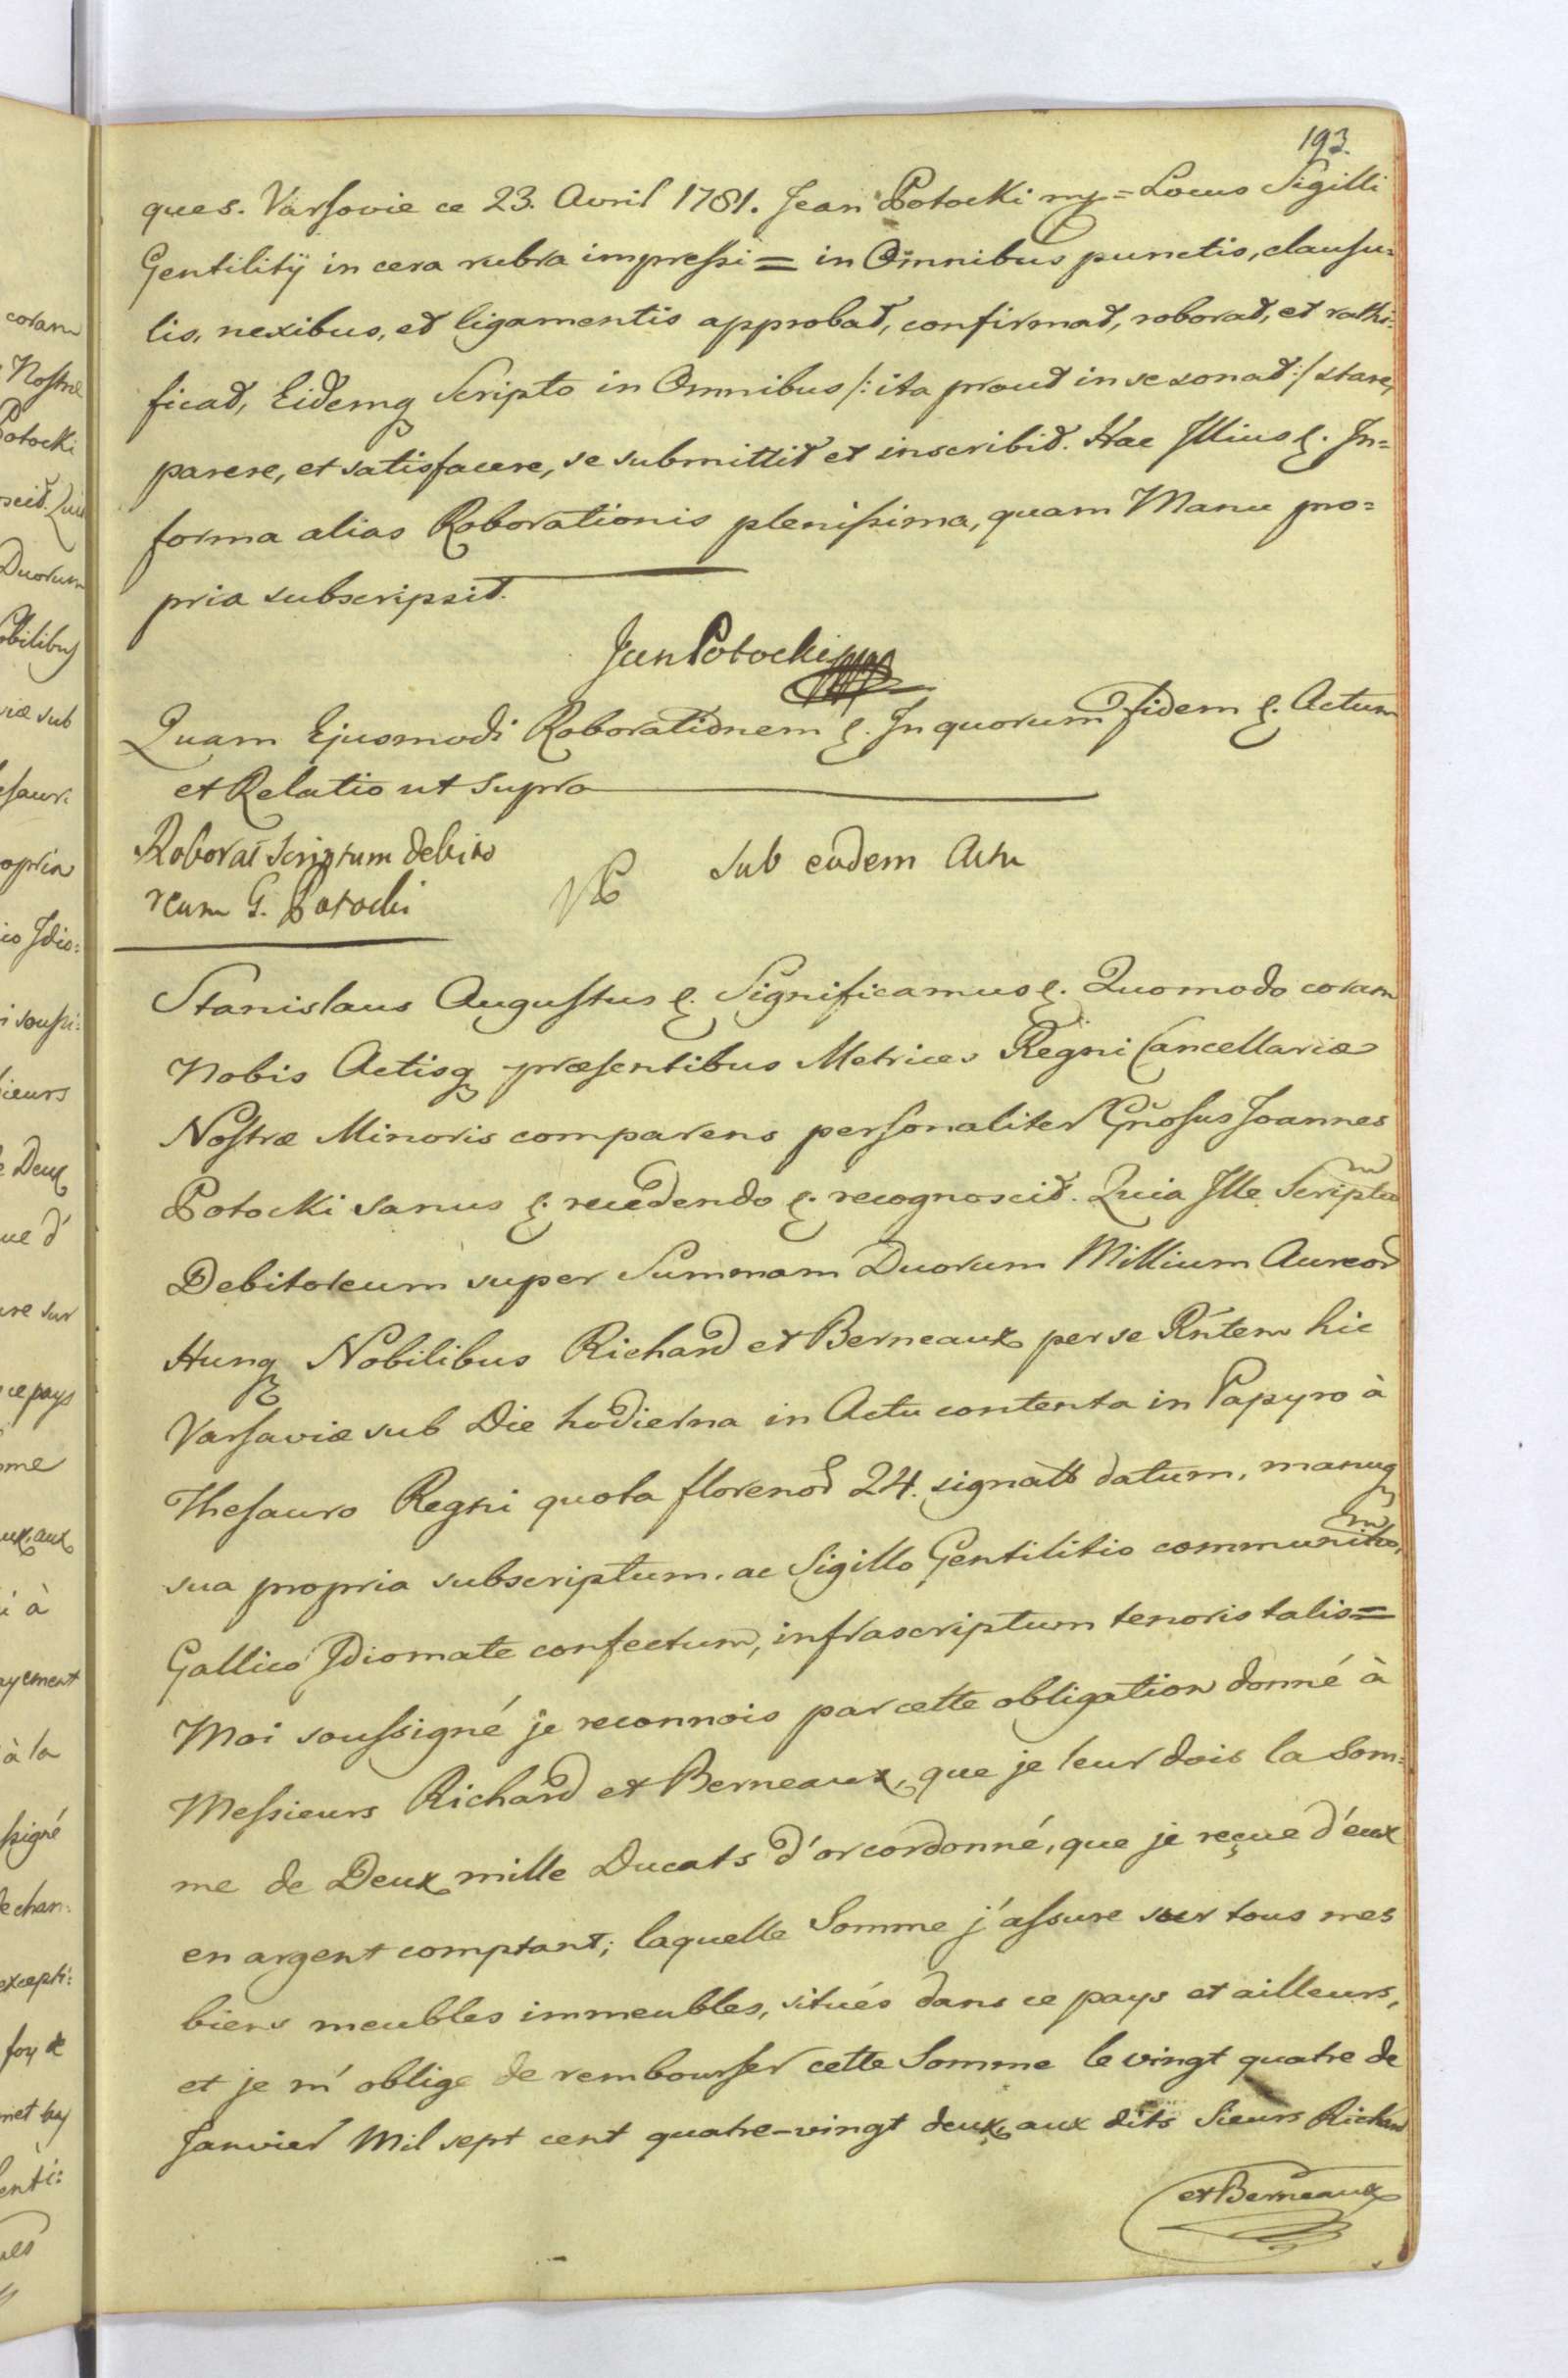 193.
ques. Varsovie ce 23. Avril 1781. Jean Potocki mp = Locus Sigilli
Gentilitÿ in cera rubra impressi = in Omnibus punctis, clausu=
lis, nexibus, et ligamentis approbat, confirmat, roborat, et rathi=
ficat, Eidemq Scripto in Omnibus /: ita prout in se sonat :/ stare,
parere, et satisfacere, se submittit et inscribit. Hac Illius &. In=
forma alias Roborationis plenissima, quam Manu pro=
pria subscripsit.
Jan Potocki mp
Quam Ejusmodi Roborationem &. In quorum fidem &. Actum
et Relatio ut supra
Roborat scriptum debito
reum G. Potocki
sub eodem Actu
Stanislaus Augustus &. Significamus &. Quomodo coram
Nobis Actisq præsentibus Metrices Regni Cancellariæ
Nostræ Minoris comparens personaliter Gnosus Joannes
Potocki sanus &. recedendo &. recognoscit. Quia Ille Scriptum
Debitoreum super Summam Duorum Millium Aureor
Hung Nobilibus Richard et Berneaux per se Rntem hic
Varsaviæ sub Die hodierna in Actu contenta in Papyro à
Thesauro Regni quota florenor 24. signatto datum, manuq
sua propria subscriptum, ac Sigillo Gentilitio communitum,
Gallico Idiomate confectum, infrascriptum tenoris talis =
Moi soussigné je reconnois par cette obligation donné à
Messieurs Richard et Berneaux, que je leur dois la Som=
me de Deux mille Ducats d'or cordonné, que je reçue d'eux
en argent comptant; laquelle Somme j'assure sur tous mes
biens meubles immeubles, situés dans ce pays et ailleurs,
et je m'oblige de rembourser cette Somme le vingt quatre de
Janvier Mil sept cent quatre-vingt deux, aux dits Sieurs Richard
et Berneaux